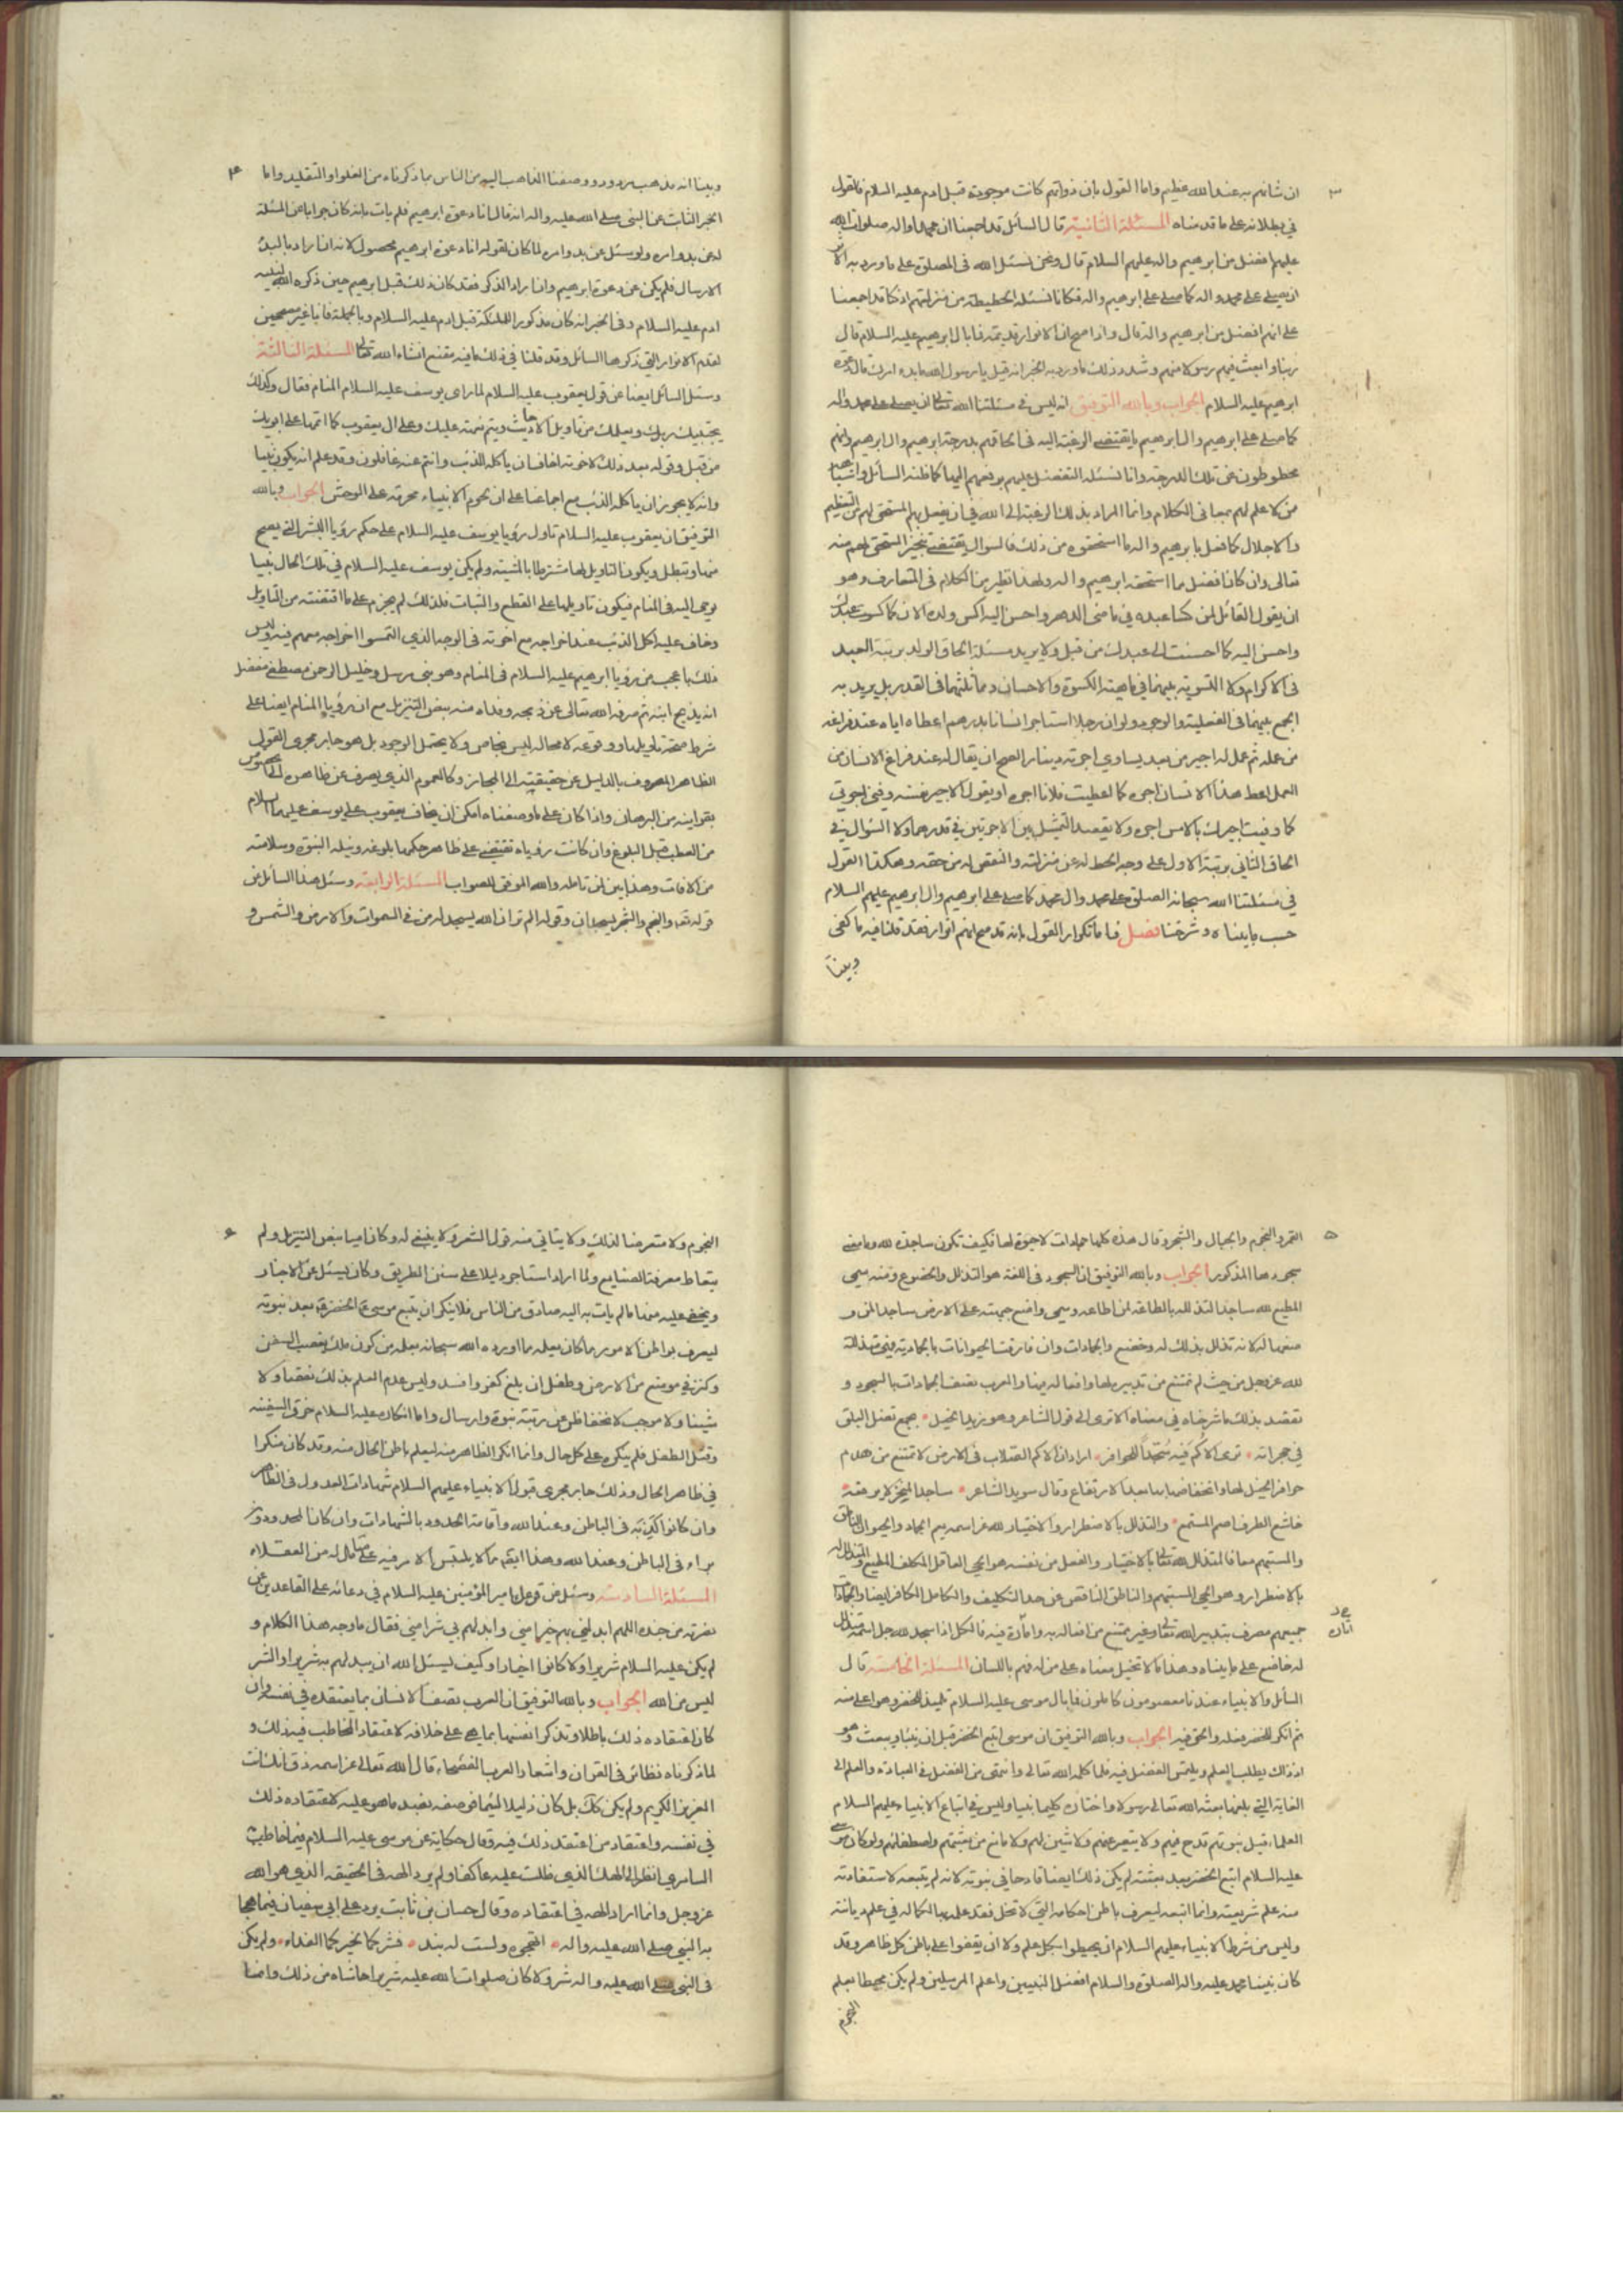 ٣
ان شانهم به عند الله عظيم واما القول بان ذواتهم كانت موجودة قبل ادم عليه السلام فالقول
في بطلانه على ما قدمناه المسئلة الثانية قال السائل قد اجمعنا ان محمدا واله صلوات الله
عليهم افضل من ابرهيم واله عليهم السلام قال ونحن نسئل الله في الصلوة على ما ورد به الاثر
ان يصلي على محمد واله كما صلى على ابرهيم واله فكانا نسئله الحطيطة من منزلتهم اذ كنا قد اجمعنا
على انهم افضل من ابرهيم واله قال واذا صح ان الانوار قديمة فما بال ابرهيم عليه السلام قال
ربنا وابعث فيهم رسولا منهم وشدد ذلك ما ورد به الخبر انه قيل يا رسول الله ما بدء امرك قال دعوة
ابرهيم عليه السلام الجواب وبالله التوفيق انه ليس في مسئلتنا الله تعالى ان يصلي على محمد واله
كما صلى على ابرهيم وال ابرهيم ما يقتضي الرغبة اليه في الحاقهم بدرجة ابرهيم وال ابرهيم وانهم
محطوطون عن تلك الدرجة وانا نسئله التفضل عليهم برفعهم اليها كما ظنه السائل واشباهه
من لا علم لهم بمعاني الكلام وانما المراد بذلك الرغبة الى الله في ان يفعل بهم المستحق لهم من التعظيم
والاجلال كما فعل بابرهيم واله ما استحقوه من ذلك فالسوال يقتضي تنجيز المستحق لهم منه
تعالى وان كان افضل مما استحقه ابرهيم واله ولهذا نظير من الكلام في المتعارف وهو
ان يقول القائل لمن كسا عبده في ما مضى الدهر واحسن اليه اكس ولدك الان كما كسوت عبدك
واحسن اليه كما احسنت الى عبدك من قبل ولا يريد مسئلة الحاق الولد برتبة العبد
في الاكرام ولا التسوية بينهما في ماهية الكسوة والاحسان ومماثلتهما في القدر بل يريد به
الجمع بينهما في الفعلية والوجود ولو ان رجلا استاجر انسانا بدرهم اعطاه اياه عند فراغه
من عمله ثم عمل له اجير من بعد يساوي اجرته دينارا لصح ان يقال له عند فراغ الانسان من
العمل اعط هذا الانسان اجره كما اعطيت فلانا اجره او يقول الاجير نفسه وفني اجرتي
كما وفيت اجيرك بالامس اجره ولا يقصد التمثيل بين الاجرتين في قدرهما ولا السؤال في
الحاق الثاني برتبة الاول على وجه الحط له عن منزلته والنقص له من حقه وهكذا القول
في مسئلتنا الله سبحانه الصلوة على محمد وال محمد كما صلى على ابرهيم وال ابرهيم عليهم السلام
حسب ما بيناه وشرحناه فصل فاما تكرار القول بانه قد صح انهم انوار فقد قلنا فيه ما كفى
وبينا
٤
وبينا انه مذهب مردود ووصفنا الذاهب اليه من الناس بما ذكرناه من الغلو او التقليد واما
الخبر الثابت عن النبي صلى الله عليه واله انه قال انا دعوة ابرهيم فلم يات بانه كان جوابا عن المسئلة
له عن بدو امره ولو سئل عن بدو امره لما كان لقوله انا دعوة ابرهيم محصول لانه ان اراد بالبدء
الارسال فلم يكن عن دعوة ابرهيم وان اراد الذكر فقد كان ذلك قبل ابرهيم حين ذكره الله لنبيه
ادم عليه السلام وفي الخبر انه كان مذكورا للملئكة قبل ادم عليه السلام وبالجملة فانا غير مصححين
لقدم الانوار التي ذكرها السائل وقد قلنا في ذلك ما فيه مقنع انشاء الله تعالى المسئلة الثالثة
وسئل السائل ايضا عن قول يعقوب عليه السلام لما راى يوسف عليه السلام المنام فقال وكذلك
يجتبيك ربك ويعلمك من تاويل الاحاديث ويتم نعمته عليك وعلى ال يعقوب كما اتمها على ابويك
من قبل وقوله بعد ذلك لاخوته اخاف ان ياكله الذئب وانتم عنه غافلون وقد علم انه يكون نبيا
وانه لا يجوز ان ياكله الذئب مع اجماعنا على ان لحوم الانبياء محرمة على الوحش الجواب وبالله
التوفيق ان يعقوب عليه السلام تاول رؤيا يوسف عليه السلام على حكم رؤيا البشر التي يصح
منها وتبطل ويكون التاويل لها مشترطا بالمشية ولم يكن يوسف عليه السلام في تلك الحال نبيا
يوحى اليه في المنام فيكون تاويلها على القطع والثبات فلذلك لم يجزم على ما اقتضته من التاويل
وخاف عليه اكل الذئب عند اخراجه مع اخوته في الوجه الذي التمسوا اخراجه معهم فيه وليس
ذلك باعجب من رؤيا ابرهيم عليه السلام في المنام وهو نبي مرسل وخليل الرحمن مصطفى مفضل
انه يذبح ابنه ثم صرفه الله تعالى عن ذبحه وفداه منه بنص التنزيل مع ان رؤيا المنام ايضا على
شرط صحة تاويلها ووقوعه لا محاله ليس بخاص ولا يحتمل الوجود بل هو جار مجرى القول
الظاهر المصروف بالدليل عن حقيقته الى المجاز وكالعموم الذي يصرف عن ظاهره الى الخصوص
بقراينه من البرهان واذا كان على ما وصفناه امكن ان يخاف يعقوب على يوسف عليهما السلام
من العطب قبل البلوغ وان كانت رؤياه تقتضي على ظاهر حكمها بلوغه ونيله النبوة وسلامته
من الافات وهذا بين لمن تامله والله الموفق للصواب المسئلة الرابعة وسئل هذا السائل عن
قوله تعالى والنجم والشجر يسجدان وقوله الم تر ان الله يسجد له من في السموات والارض والشمس و
٥
القمر والنجوم والجبال والشجر وقال هذه كلها جمادات لا حيوة لها فكيف تكون ساجدة لله وما معنى
سجودها المذكور الجواب وبالله التوفيق ان السجود في اللغة هو التذلل والخضوع ومنه سمي
المطيع لله ساجدا لتذلله بالطاعة لمن اطاعه وسمي واضع جبهته على الارض ساجدا لمن و
ضعها له لانه تذلل بذلك له وخضع والجمادات وان فارقت الحيوانات بالجمادية فهي متذللة
لله عز وجل من حيث لم تمتنع من تدبيره لها وافعاله فيها والعرب تصف الجمادات بالسجود و
تقصد بذلك ما شرحناه في معناه الا ترى الى قول الشاعر وهو زيد الخيل بجمع تضل البلق
في حجراته ترى الاكم فيه سجدا للحوافر اراد ان الاكم الصلاب في الارض لا تمتنع من هدم
حوافر الخيل لها وانخفاضها بها بعد الارتفاع وقال سويد الشاعر ساجد المنخر لا يرفعه
خاشع الطرف اصم المستمع والتذلل بالاضطرار والاختيار لله عز اسمه يعم الجماد والحيوان الناطق
والمستبهم معا فالمتذلل لله تعالى بالاختيار والفعل من نفسه هو الحي العاقل المكلف المطيع والمتذلل له
بالاضطرار هو الحي المستبهم والناطق الناقص عن حد التكليف والكامل الكافر ايضا والجمادات
جميعهم مصرف بتدبير الله تعالى وغير ممتنع من افعاله به واثاره فيه فالكل اذا سجد لله جل اسمه متذلل
اثاره
له خاضع على ما بيناه وهذا مالا تختل معناه على من له فهم باللسان المسئلة الخامسة قال
السائل والانبياء عندنا معصومون كاملون فما بال موسى عليه السلام تلميذ للخضر وهو اعلى منه
ثم انكر للخضر فعله والحق فيه الجواب وبالله التوفيق ان موسى اتبع الخضر قبل ان ينبأ ويبعث وهو
اذ ذاك يطلب العلم ويلتمس الفضل فيه فلما كلمه الله تعالى وانتهى من الفضل في العبادة والعلم الى
الغاية التي بلغها بعثه الله تعالى رسولا واختاره كليما نبيا وليس في اتباع الانبياء عليهم السلام
العلماء قبل نبوتهم قدح فيهم ولا منفر عنهم ولا شين لهم ولا مانع من بعثتهم واصطفائهم ولو كان موسى
عليه السلام اتبع الخضر بعد بعثته لم يكن ذلك ايضا قادحا في نبوته لانه لم يتبعه لاستفادته
منه علم شريعته وانما اتبعه ليعرف باطن احكامه التي لا تخل فقد علمه بها لكماله في علم ديانته
وليس من شرط الانبياء عليهم السلام ان يحيطوا بكل علم ولا ان يقفوا على باطن كل ظاهر وقد
كان نبينا محمد عليه واله الصلوة والسلام افضل النبيين واعلم المرسلين ولم يكن محيطا بعلم
النجوم
٦
النجوم ولا متعرضا لذلك ولا يتاتى منه قول الشعر ولا ينبغي له وكان اميا بنص التنزيل ولم
يتعاط معرفة الصنايع ولما اراد استاجر دليلا على سنن الطريق وكان يسئل عن الاخبار
ويخفى عليه منها ما لم يات به اليه صادق من الناس فلا ينكر ان يتبع موسى الخضر بعد نبوته
ليعرف بواطن الامور مما كان يعلمه مما اورده الله سبحانه بعلمه من كون ملك يغصب السفن
وكنز في موضع من الارض وطفل ان بلغ كفر وافسد وليس عدم العلم بذلك نقصا ولا
شينا ولا موجب لانخفاض عن رتبة نبوة وارسال واما انكاره عليه السلام خرق السفينه
وقتل الطفل فلم ينكره على كل حال وانما انكر الظاهر منه ليعلم باطن الحال منه وقد كان منكرا
في ظاهر الحال وذلك جار مجرى قبول الانبياء عليهم السلام شهادات العدول في الظاهر
وان كانوا كذبة في الباطن وعند الله واقامة الحدود بالشهادات وان كان المحدودون
براء في الباطن وعند الله وهذا ايضا مما لا يلتبس الامر فيه على متامل له من العقلاء
المسئلة السادسة وسئل عن قول امير المؤمنين عليه السلام في دعائه على القاعدين عن
نصرته من جنده اللهم ابدلني بهم خيرا مني وابدلهم بي شرا مني فقال ما وجه هذا الكلام و
لم يكن عليه السلام شريرا ولا كانوا اخيارا وكيف يسئل الله ان يبدلهم به شريرا والشر
ليس من الله الجواب وبالله التوفيق ان العرب تصف الانسان بما يعتقده في نفسه وان
كان اعتقاده ذلك باطلا وتذكر انفسها بما هي على خلافه لاعتقاد المخاطب فيه ذلك و
لما ذكرناه نظائر في القران واشعار العرب الفصحاء قال الله تعالى عز اسمه ذق انك انت
العزيز الكريم ولم يكن كك بل كان ذليلا لئيما فوصفه بضد ما هو عليه لاعتقاده ذلك
في نفسه واعتقاد من اعتقد ذلك فيه وقال حكاية عن موسى عليه السلام فيما خاطب به
السامري انظر الى الهك الذي ظلت عليه عاكفا ولم يرد الهه في الحقيقه الذي هو الله
عز وجل وانما اراد الهه في اعتقاده وقال حسان بن ثابت يرد على ابي سفيان فيما هجا
به النبي صلى الله عليه واله اتهجوه ولست له بند فشركما لخيركما الفداء ولم يكن
في النبي صلى الله عليه واله شر ولا كان صلوات الله عليه شريرا حاشاه من ذلك وانما